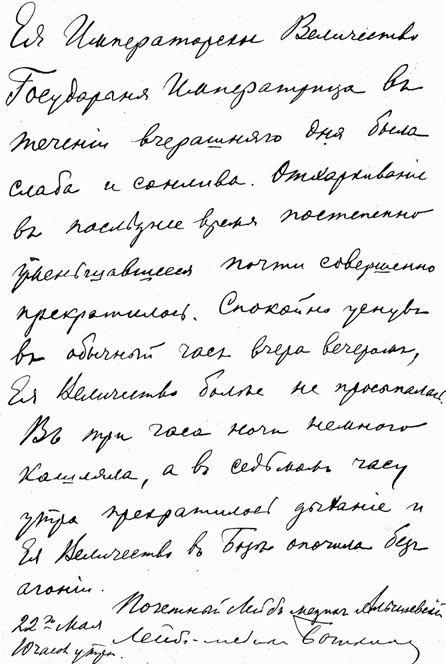 Ея Императорское Величество
Государыня Императрица въ
теченіи вчерашняго дня была
слаба и сонлива. Отхаркиваніе
въ последнее время постепенно
уменьшавшееся почти совершенно
прекратилось. Спокойно уснувъ
въ обычный часъ вчера вечеромъ,
Ея Величество более не просыпалась.
Въ три часа ночи немного
кашляла, а въ седьмомъ часу
утра прекратилось дыханіе и
Ея Величество въ Бозе опочила безъ
агоніи.
Почетный Лейбъ медикъ Алышевскій
22го Мая Лейбъ-медикъ Боткинъ
10 часовъ утра.